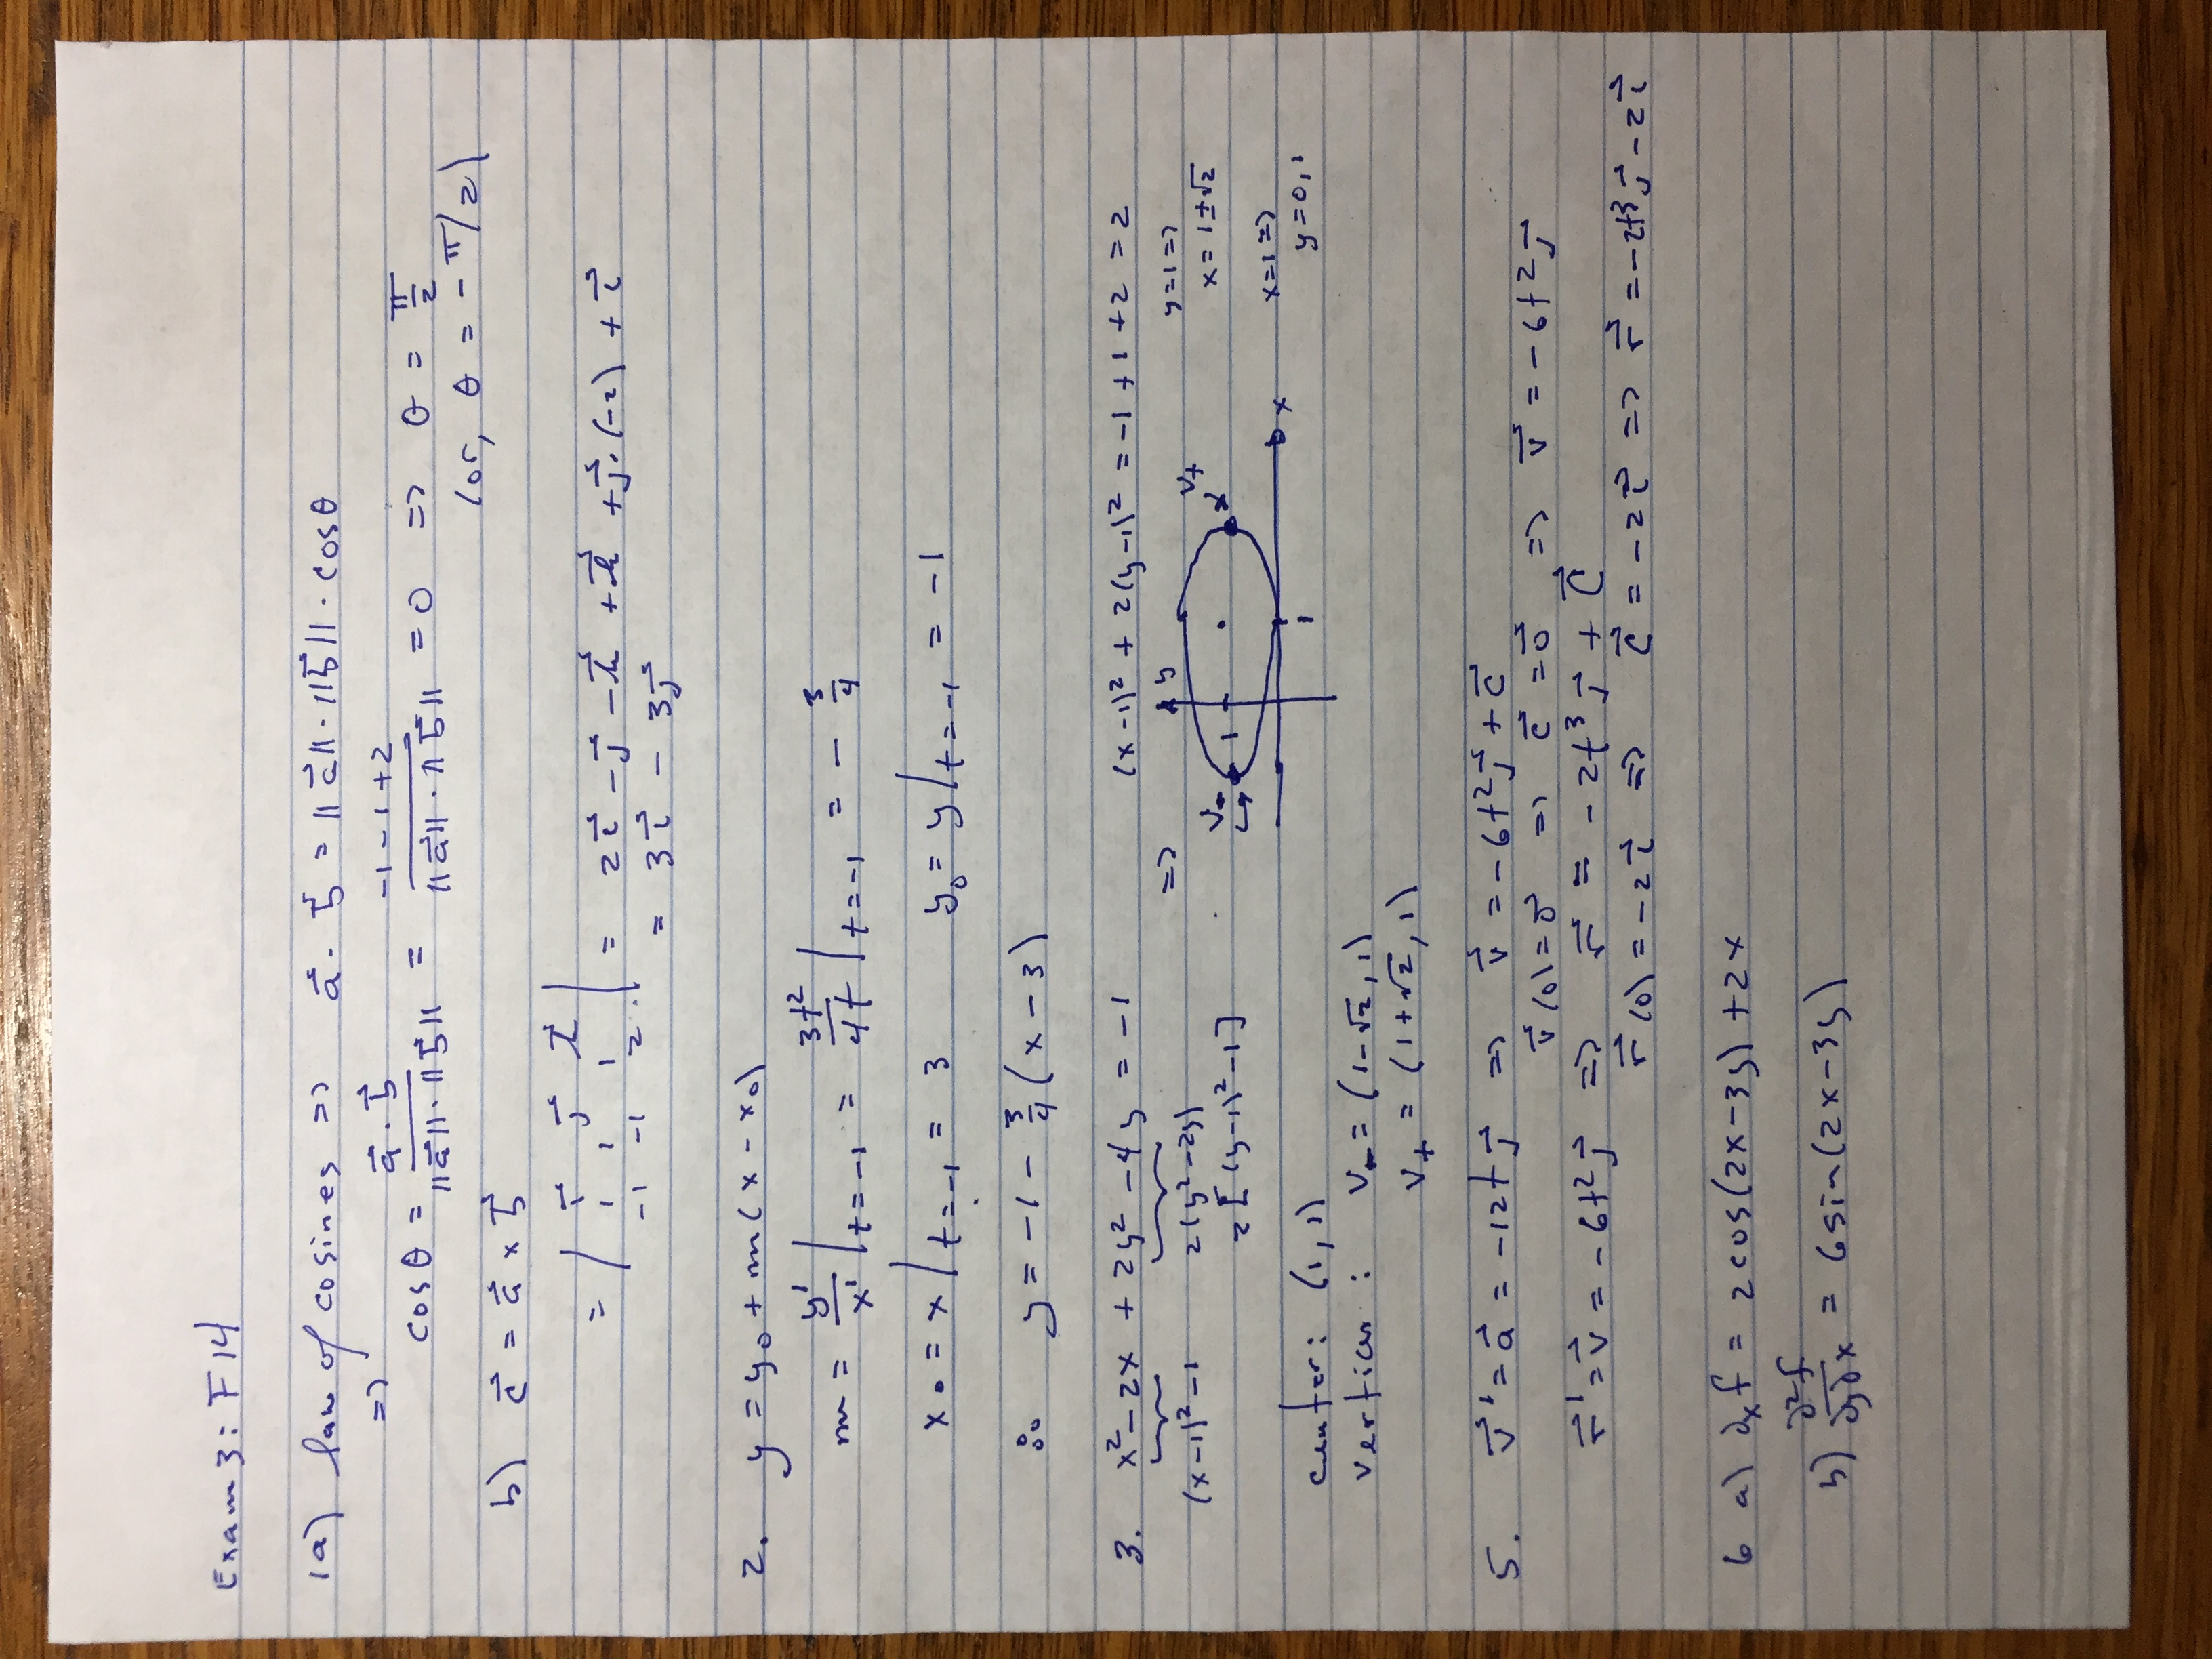 Exam 3: F14
1a) law of cosines => a⃗ · b⃗ = ||a⃗|| · ||b⃗|| · cosθ
=> cosθ = a⃗ · b⃗ / ||a⃗|| · ||b⃗|| = -1 - 1 + 2 / ||a⃗|| · ||b⃗|| = 0 => θ = π/2
(or, θ = -π/2)
b) c⃗ = a⃗ x b⃗
= | i⃗ j⃗ k⃗
1 1 1
-1 -1 2 | = 2i⃗ - j⃗ - k⃗ + k⃗ + j⃗·(-2) + i⃗
= 3i⃗ - 3j⃗
2. y = y₀ + m(x - x₀)
m = y'/x' |t=-1 = 3t²/4t |t=-1 = - 3/4
x₀ = x |t=-1 = 3 y₀ = y |t=-1 = -1
∴ y = -1 - 3/4 (x - 3)
3. x² - 2x + 2y² - 4y = -1 => (x-1)² + 2(y-1)² = -1 + 1 + 2 = 2
(x-1)² - 1 2(y² - 2y)
2[(y-1)² - 1]
y=1 =>
x = 1±√2
x=1 =>
y = 0, 1
y
V-
V+
1
x
1
Center: (1,1)
Vertices: V- = (1-√2, 1)
V+ = (1+√2, 1)
5. v⃗' = a⃗ = -12t j⃗ => v⃗ = -6t² j⃗ + c⃗
v⃗(0) = 0⃗ => c⃗ = 0⃗ => v⃗ = -6t² j⃗
r⃗' = v⃗ = -6t² j⃗ => r⃗ = -2t³ j⃗ + c⃗
r⃗(0) = -2i⃗ => c⃗ = -2i⃗ => r⃗ = -2t³ j⃗ - 2i⃗
6 a) ∂ₓf = 2cos(2x-3y) + 2x
b) ∂²f/∂y∂x = 6sin(2x-3y)